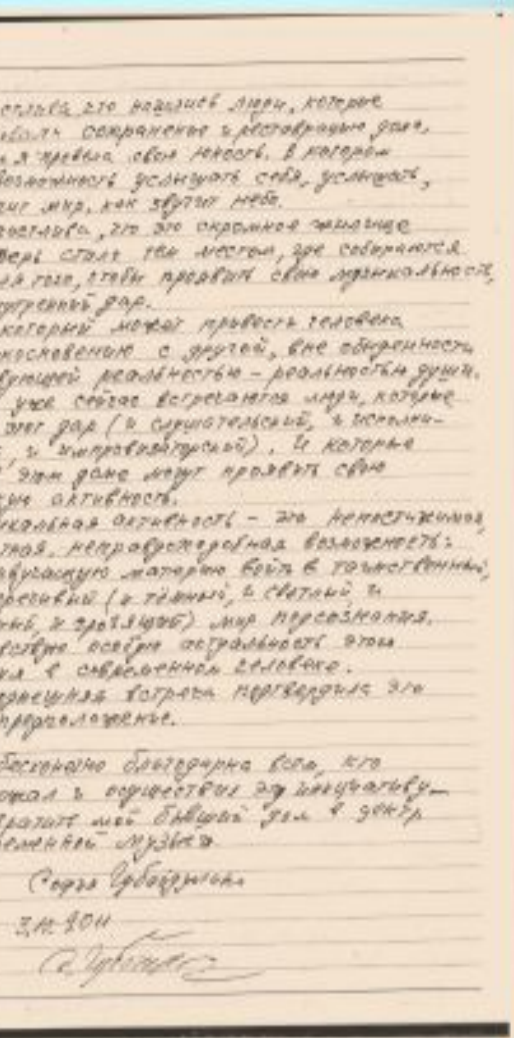 стлива что нашлись люди, которые
овать сохранение и реставрацию дома,
я провела свою юность. В котором
возможность услышать себя, услышать,
чит мир, как звучит небо.
частлива, что это скромное жилище
перь стало тем местом, где собираются
ля того, чтобы проявить свою музыкальность,
утренний дар.
который может привести человека
икосновению с другой, вне обыденности
вующей реальностью – реальностью души.
уже сейчас встречаются люди, которые
этот дар (и слушательский, и исполни-
, и импровизаторский). И которые
этом доме могут проявить свою
кую активность.
икальная активность – это непостижимая,
тная, неправдоподобная возможность:
звучащую материю войти в таинственный,
речивый (и тёмный, и светлый, и
ный, и грозящий) мир подсознания.
вствую особую актуальность этого
ия в современном человеке.
одняшняя встреча подтвердила это
предположение.
бесконечно благодарна всем, кто
ржал и осуществил эту инициативу –
вратить мой бывший дом в центр
ременной музыки
София Губайдулина
2011